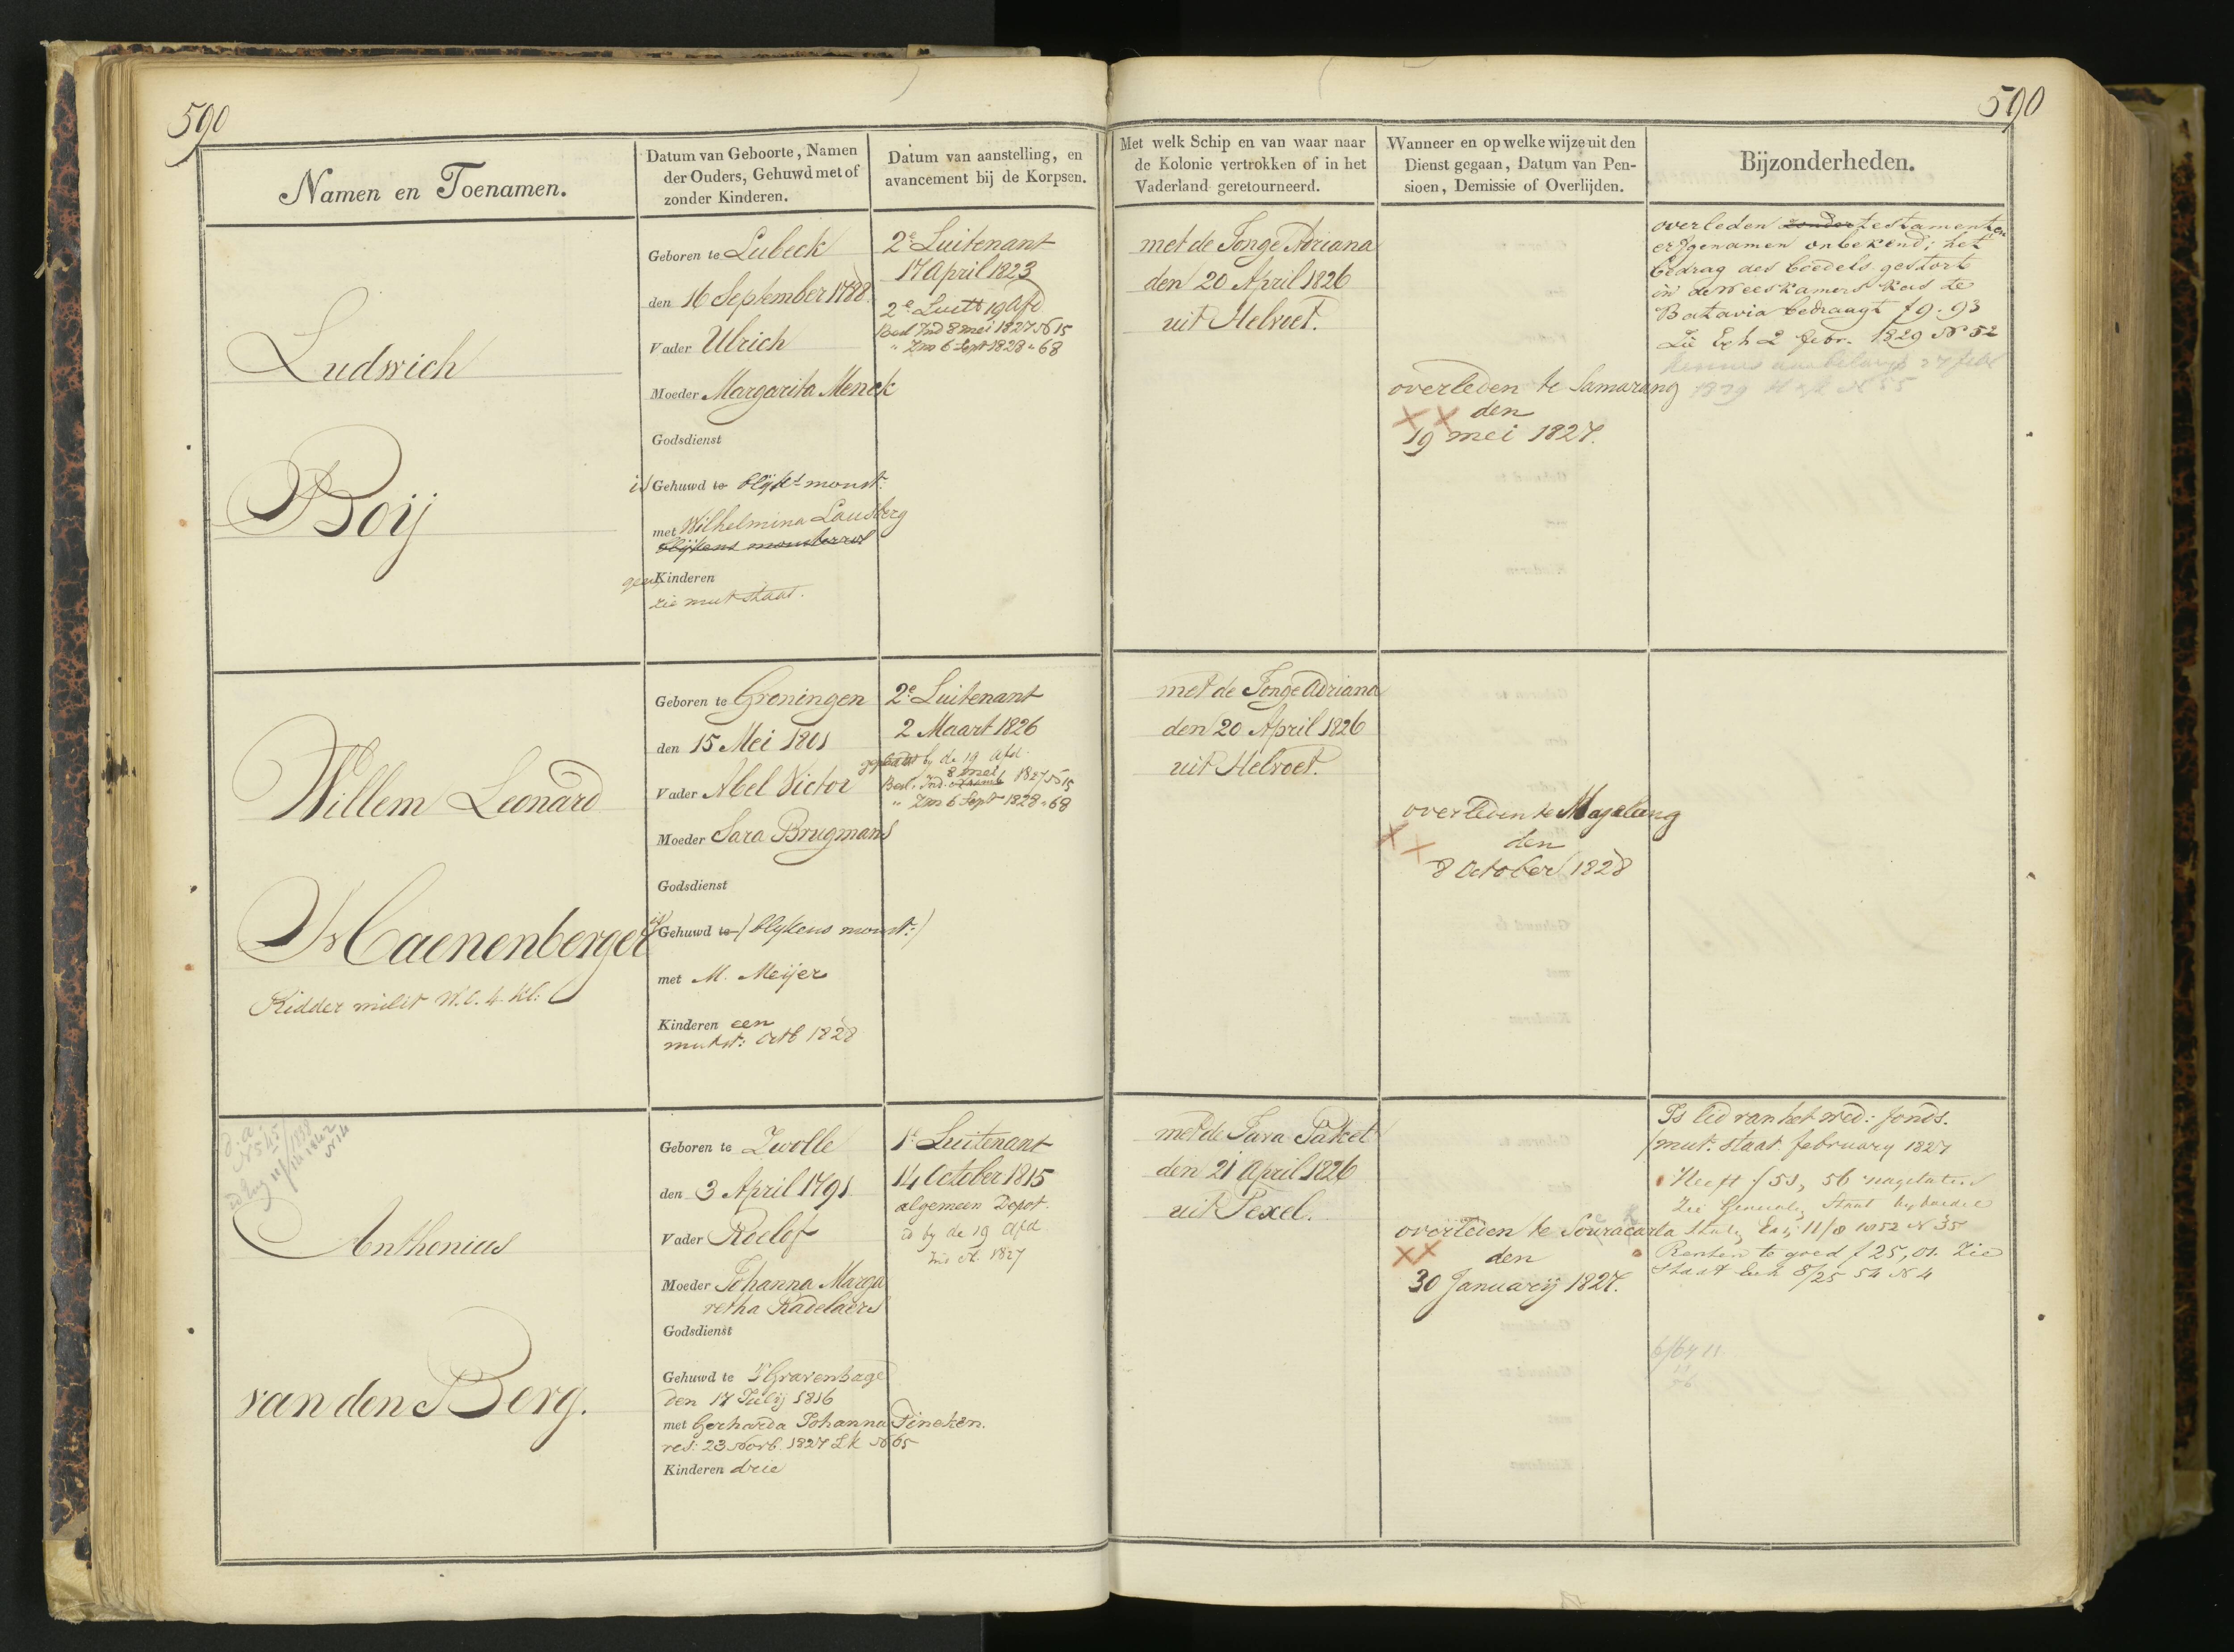 590
590
Namen en Toenamen.
Datum van Geboorte, Namen
der Ouders, Gehuwd met of
zonder Kinderen.
Datum van aanstelling, en
avancement bij de Korpsen.
Met welk Schip en van waar naar
de Kolonie vertrokken of in het
Vaderland geretourneerd.
Wanneer en op welke wijze uit den
Dienst gegaan, Datum van Pen-
sioen, Demissie of Overlijden.
Bijzonderheden.
Ludwich
Boij
Geboren te Lubeck
den 16 September 1788
Vader Ulrich
Moeder Margarita Menck
Godsdienst
is Gehuwd te blijks monst:
met Wilhelmina Lausberg
blijkens monsterrol
geen Kinderen
zie mut staat.
2e Luitenant
17 April 1823
2e Luitt 19 Afd
Besl Ind 8 mei 1827 No 15
" Zm 6 Sept 1828 " 68
met de Jonge Adriana
den 20 April 1826
uit Helvoet.
overleden te Samarang
den
19 mei 1827.
overleden zonder testament en
erfgenamen onbekend; het
bedrag des boedels gestort
in de weeskamers kas te
Batavia bedraagt f 9.93
Zie Exh 2 febr. 1829 No 52
Willem Leonard
Haenenberger
Ridder milit W.O. 4. kl:
Geboren te Groningen
den 15 Mei 1801
Vader Abel Victor
Moeder Sara Brugmans
Godsdienst
is Gehuwd te (blykens monst:)
met M. Meijer
Kinderen een
mutst: Octb 1828
2e Luitenant
2 Maart 1826
geplaatst by de 19 afd.
8 mei
Besl. Ind. 1827 No 15
" Zm 6 Sept 1828 " 68
met de Jonge Adriana
den 20 April 1826
uit Helvoet.
overleden te Magelang
den
8 October 1828
Anthonius
van den Berg.
Geboren te Zwolle
den 3 April 1791
Vader Roelof
Moeder Johanna Marga
retha Radelaers
Godsdienst
Gehuwd te 's Gravenhage
den 17 Julij 1816
met Gerharda Johanna Fincken.
res: 23 Novb. 1827 Lk No 65
Kinderen drie
1e Luitenant
14 October 1815
algemeen Depot.
id by de 19 Afd
1827
met de Java Paket
den 21 April 1826
uit Texel.
overleden te Souracarta
den
30 Januarij 1827.
Is lid van het wed: fonds.
(mut. staat february 1827
Heeft f 53, 56 nagelaten
Zie Staat
11/8 1852 No 35
Renten te goed f 25, 01. Zie
Staat Exh 8/25 54 No 4